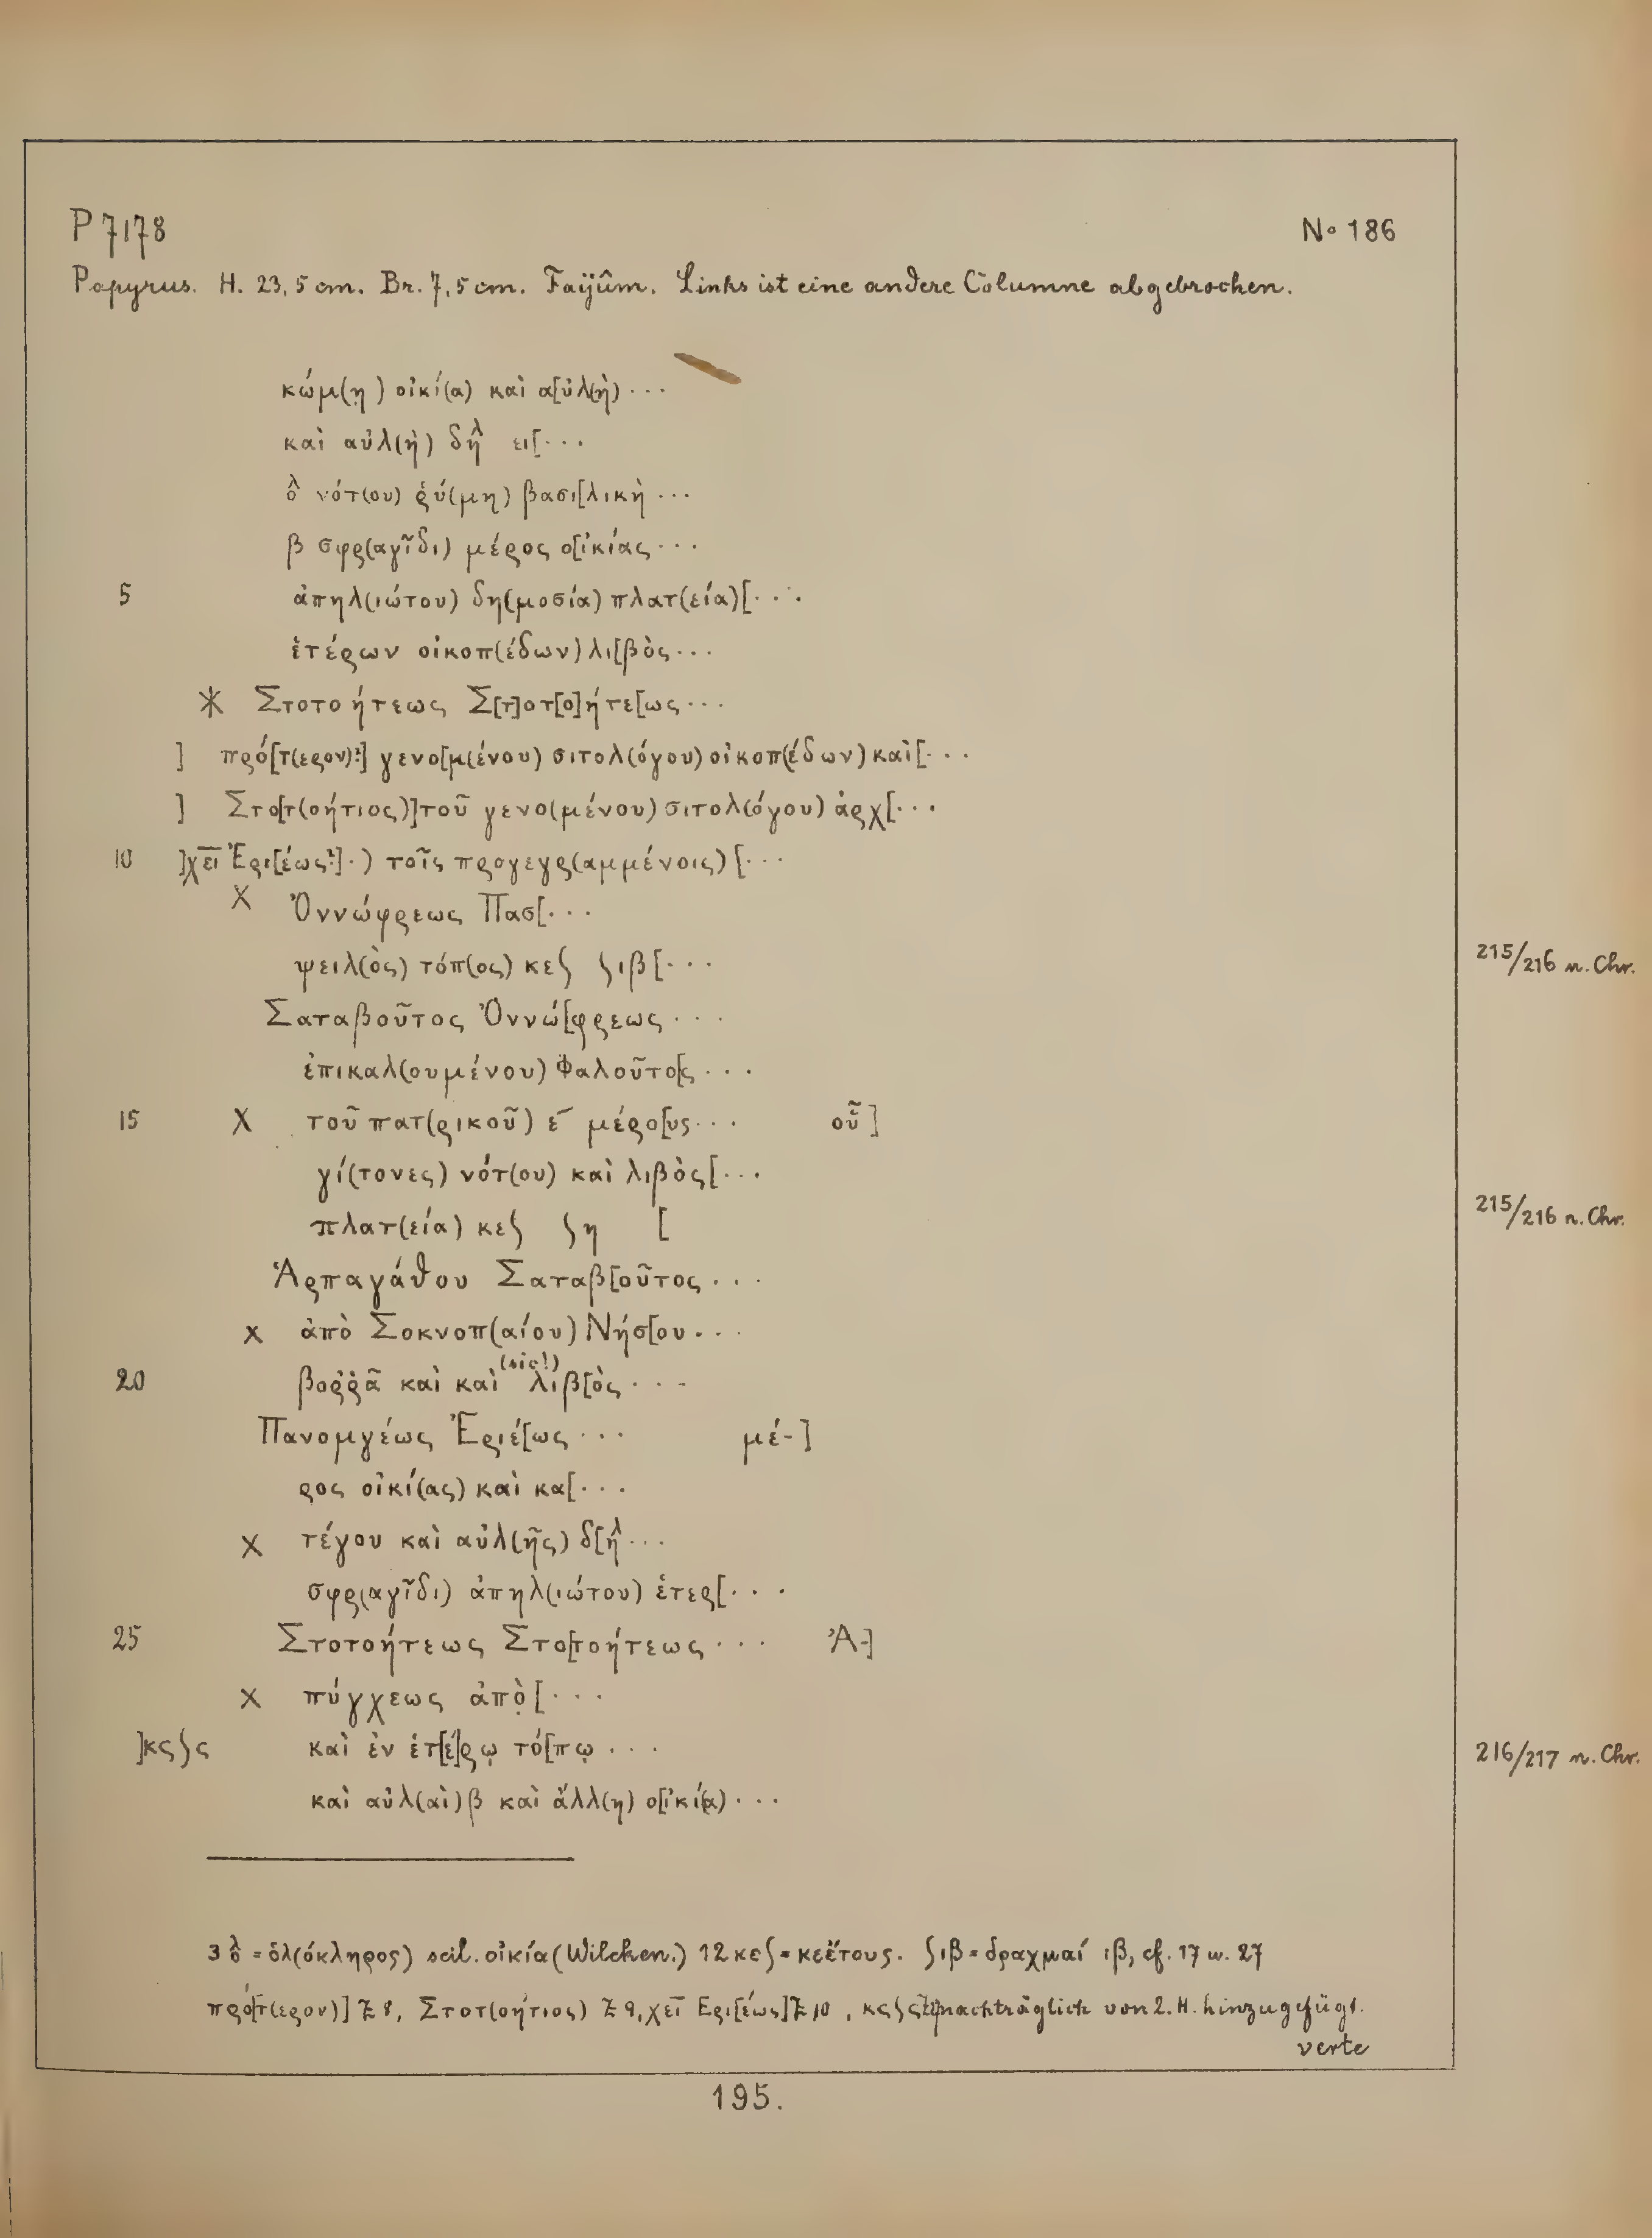 P 7178 No 186
Papyrus. H. 23,5 cm. Br. 7,5 cm. Faijûm. Links ist eine andere Columne abgebrochen.
κώμ(η) οἰκί(α) καὶ α[ὐλ(ὴ) ...
καὶ αὐλ(ὴ) δηλ ει[...
ὀλ νότ(ου) ῥύ(μη) βασι[λικὴ ...
β σφρ(αγῖδι) μέρος ο[ἰκίας ...
5 ἀπηλ(ιώτου) δη(μοσία) πλατ(εία)[...
ἑτέρων οἰκοπ(έδων) λι[βὸς ...
Ⳁ Στοτοήτεως Σ[τ]οτ[ο]ήτε[ως ...
] πρό[τ(ερον)?] γενο[μ(ένου) σιτολ(όγου) οἰκοπ(έδων) καὶ[...
] Στο[τ(οήτιος)] τοῦ γενο(μένου) σιτολ(όγου) ἀρχ[...
10 ]χεῑ Ἐρι[έως?].) τοῖς προγεγρ(αμμένοις) [...
X Ὀννώφρεως Πασ[...
ψειλ(ὸς) τόπ(ος) κεʃ ʃιβ [... 215/216 n. Chr.
Σαταβοῦτος Ὀννώ[φρεως ...
ἐπικαλ(ουμένου) Φαλοῦτο[ς ...
15 X τοῦ πατ(ρικοῦ) ε̄ μέρο[υς ... οὗ]
γί(τονες) νότ(ου) καὶ λιβὸς [...
πλατ(εία) κεʃ ʃη [ 215/216 n. Chr.
Ἁρπαγάθου Σαταβ[οῦτος ...
X ἀπὸ Σοκνοπ(αίου) Νήσ[ου ...
20 βορρᾶ καὶ καὶ (sic!) λιβ[ὸς ...
Πανομγέως Ἐριέ[ως ... μέ-]
ρος οἰκί(ας) καὶ κα[...
X τέγου καὶ αὐλ(ῆς) δ[ηλ ...
σφρ(αγῖδι) ἀπηλ(ιώτου) ἑτερ[...
25 Στοτοήτεως Στο[τοήτεως ... Ἀ-]
X πύγχεως ἀπὸ̣ [...
]κςʃς καὶ ἐν ἑτ[έ]ρῳ τό[πῳ ... 216/217 n. Chr.
καὶ αὐλ(αὶ) β καὶ ἄλλ(η) ο[ἰκί(α) ...
3 ὀλ = ὁλ(όκληρος) scil. οἰκία (Wilcken.) 12 κεʃ = κε ἔτους. ʃιβ = δραχμαί ιβ, cf. 17 u. 27
πρό[τ(ερον)] Z 8, Στοτ(οήτιος) Z 9, χεῑ Ερι[έως] Z 10, κςʃς Z 27 nachträglich von 2. H. hinzugefügt.
verte
195.